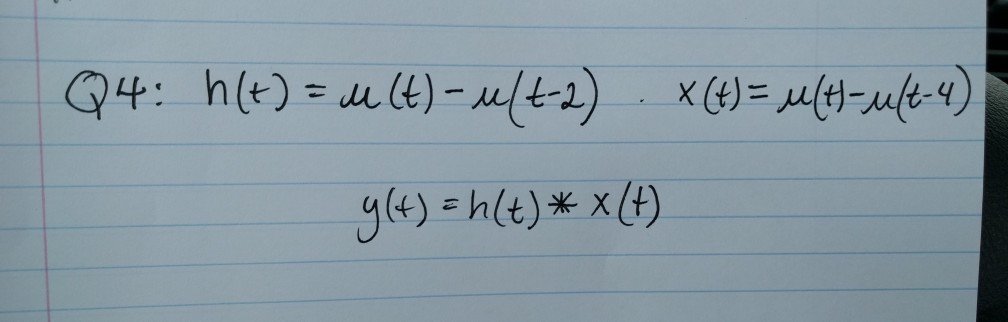 Q4: h(t) = u(t) - u(t-2) . x(t) = u(t)-u(t-4)
y(t) = h(t) * x(t)